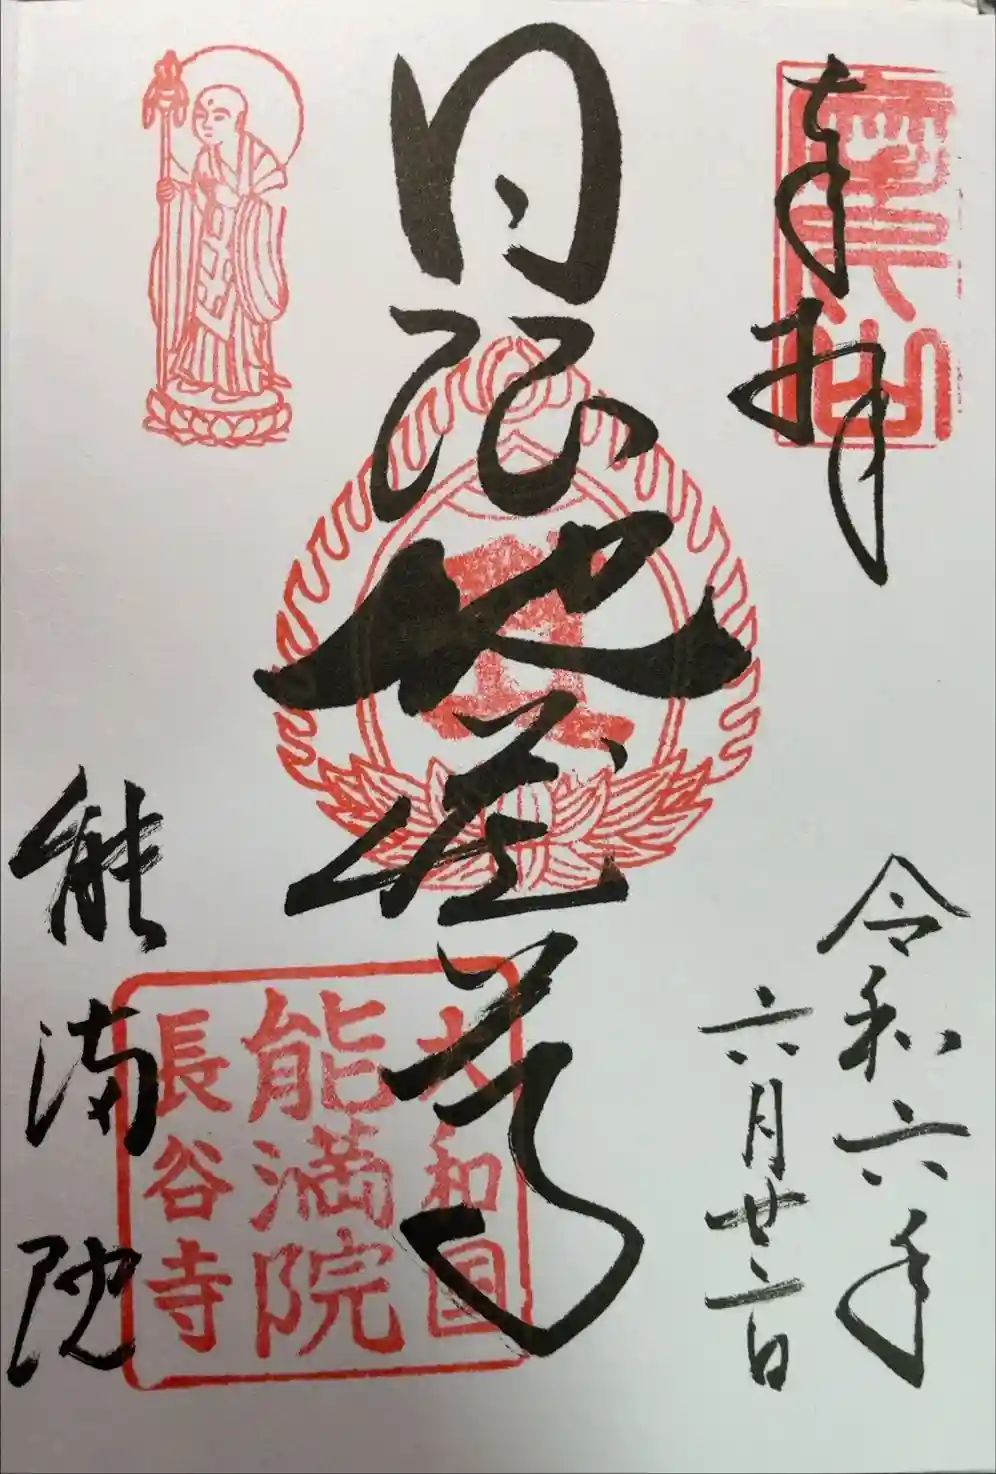 奉拝
令和六年
六月廿二日
日限地蔵尊
大和国
能満院
長谷寺
能満院